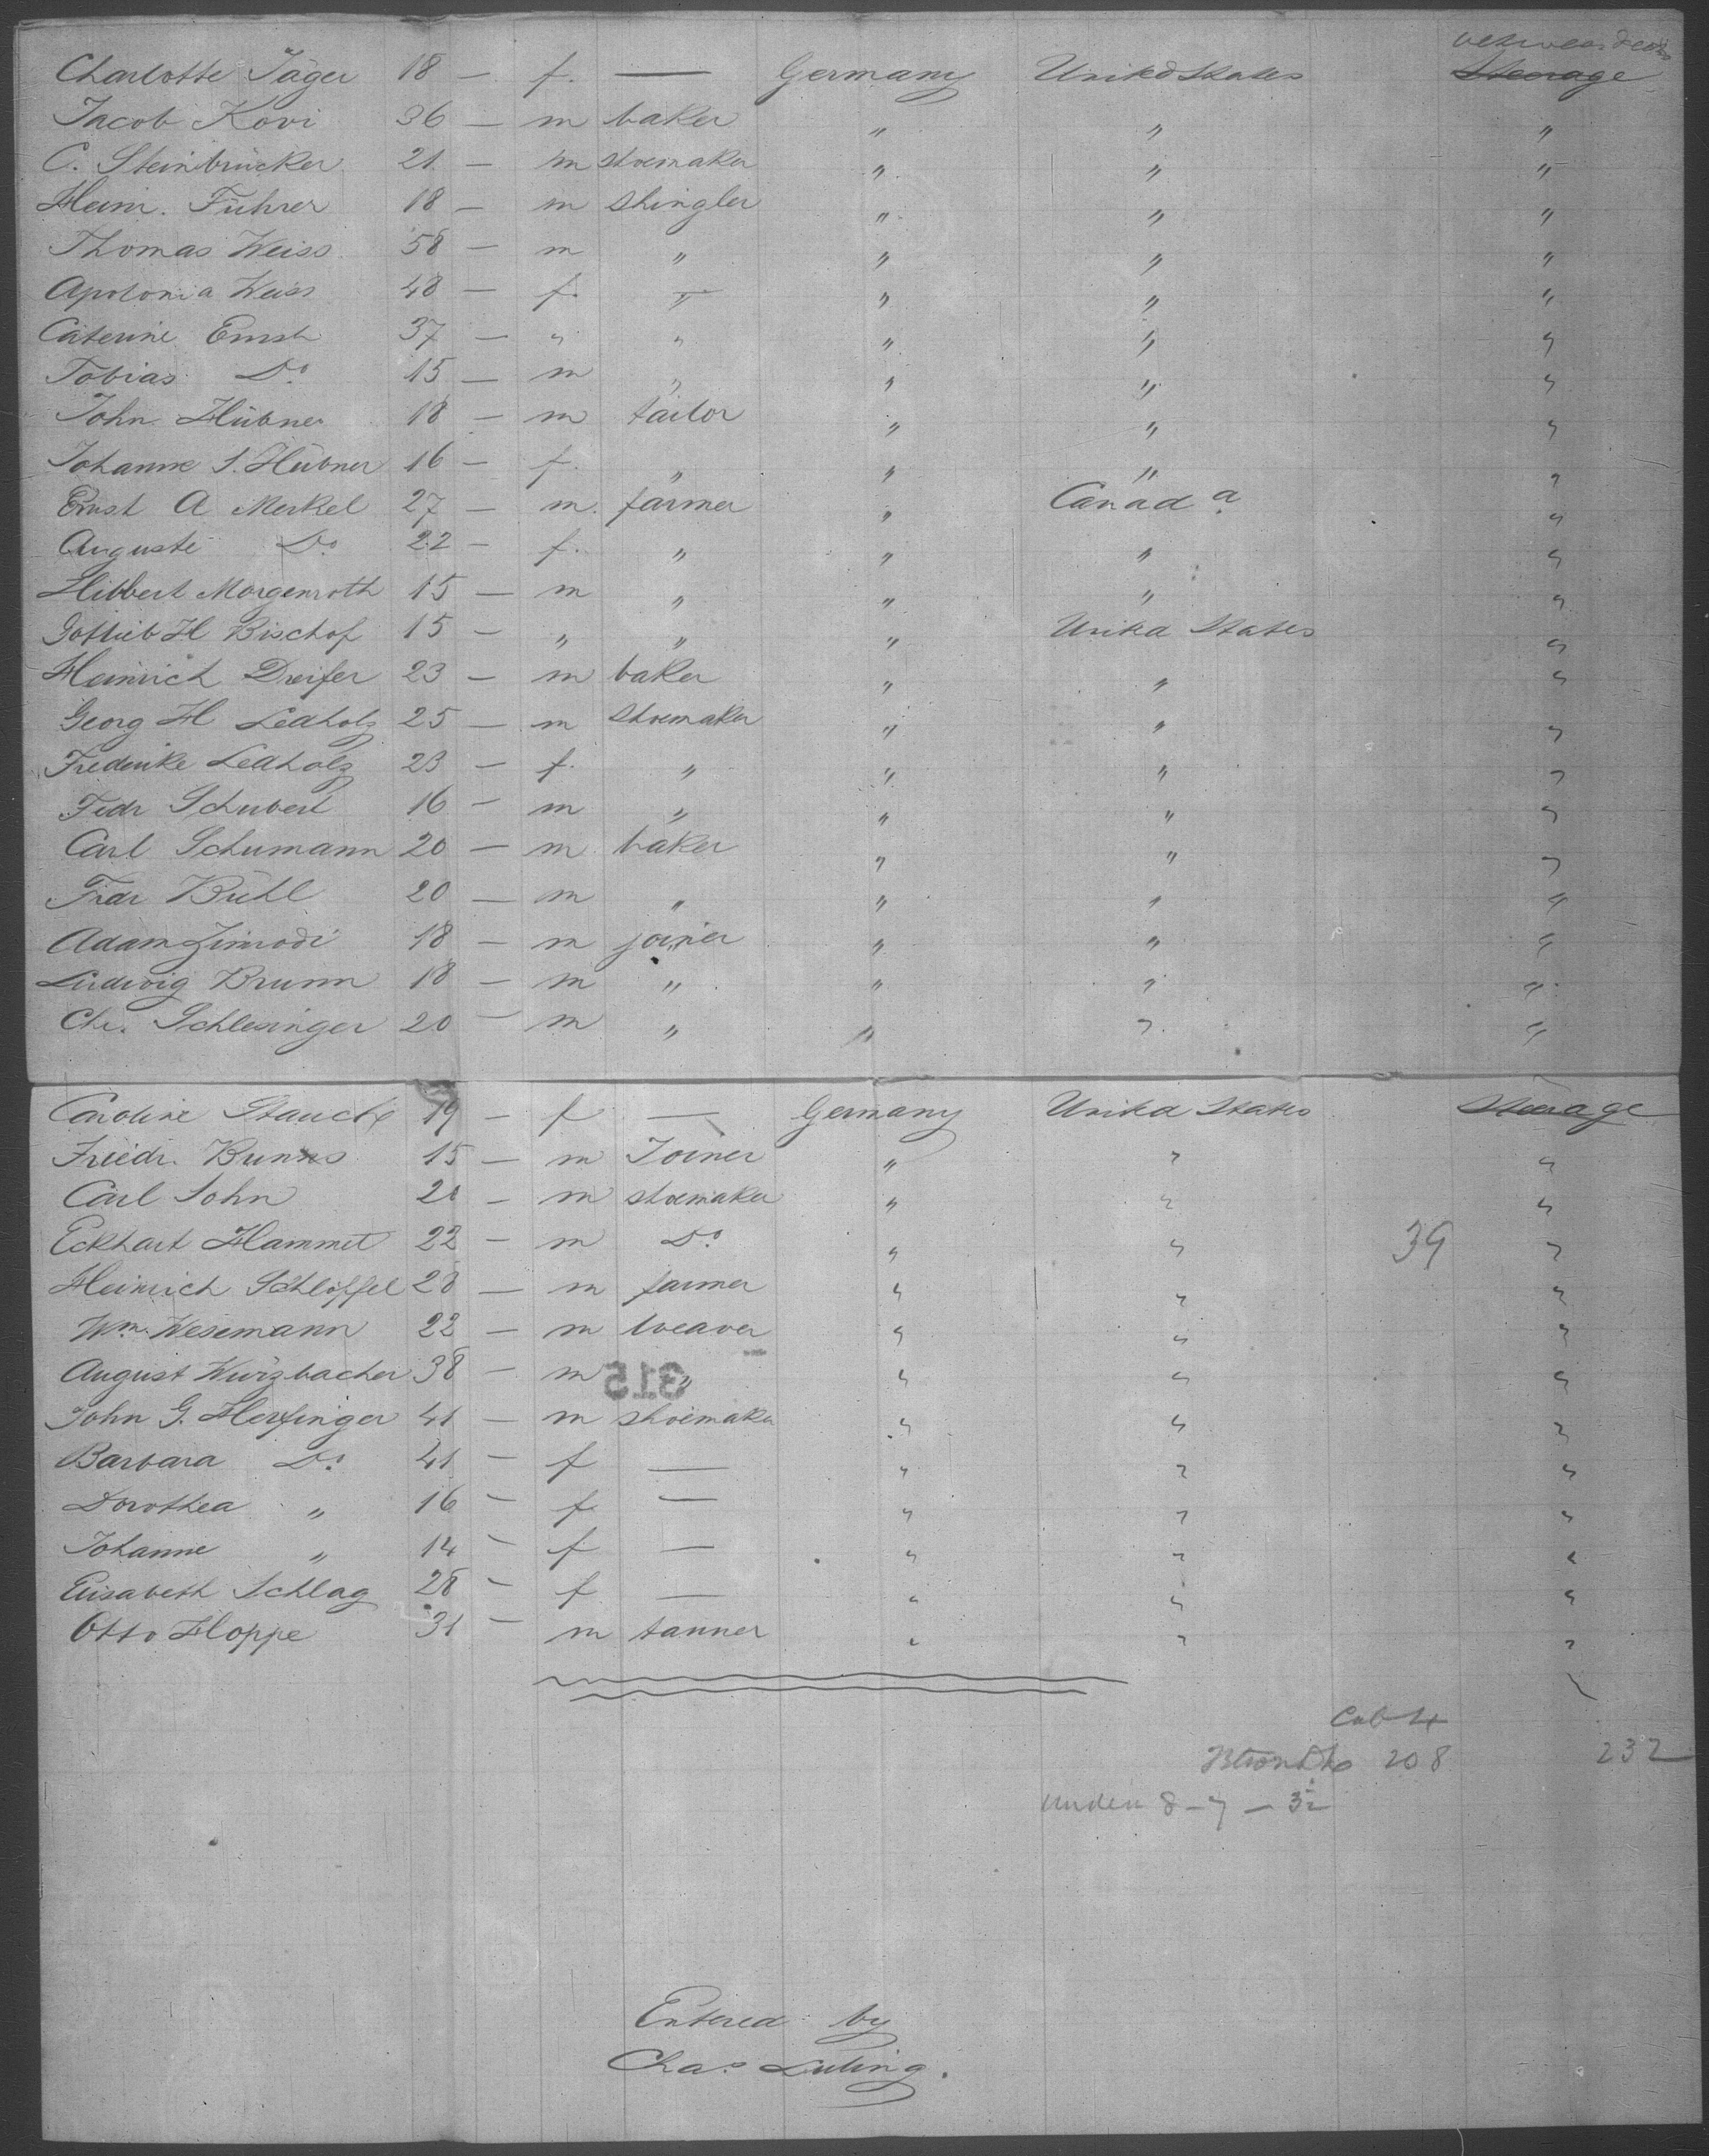 between decks
Charlotte Jäger 18 — f. — Germany United States Steerage
Jacob Kovi 36 — m baker " " "
C. Steinbrücker 21 — m shoemaker " " "
Heinr. Führer 18 — m shingler " " "
Thomas Weiss 58 — m " " " "
Apolonia Weiss 48 — f. " " " "
Caterine Ernst 37 — " " " " "
Tobias Do 15 — m " " " "
John Hübner 18 — m tailor " " "
Johanne S. Hübner 16 — f. " " " "
Ernst A Merkel 27 — m. farmer " Canada "
Auguste Do 22 — f. " " " "
Hibbert Morgenroth 15 — m " " " "
Gottlieb H Bischof 15 — " " " United States "
Heinrich Dreifer 23 — m baker " " "
Georg H Ledholz 25 — m shoemaker " " "
Frederike Ledholz 23 — f. " " " "
Fedr Schubert 16 — m " " " "
Carl Schumann 20 — m baker " " "
Fredr Bühl 20 — m " " " "
Adam Zimrodi 18 — m joiner " " "
Ludwig Brunn 18 — m " " " "
Chr. Schlesinger 20 — m " " " "
Caroline Stauch 19 — f — Germany United States Steerage
Friedr. Bunns 15 — m Joiner " " "
Carl John 20 — m shoemaker " " "
Eckhart Hammet 22 — m Do " " 39 "
Heinrich Schlöffel 28 — m farmer " " "
Wm. Wesemann 22 — m weaver " " "
August Würzbacher 38 — m " " " "
315
John G. Herfinger 41 — m shoemaker " " "
Barbara Do. 41 — f — " " "
Dorothea " 16 — f — " " "
Johanne " 14 — f — " " "
Elisabeth Schlag 28 — f — " " "
Otto Hoppe 31 — m tanner " " "
Cab 4
208 232
under 8 - 7 - 32
Entered by
Chas Luling.